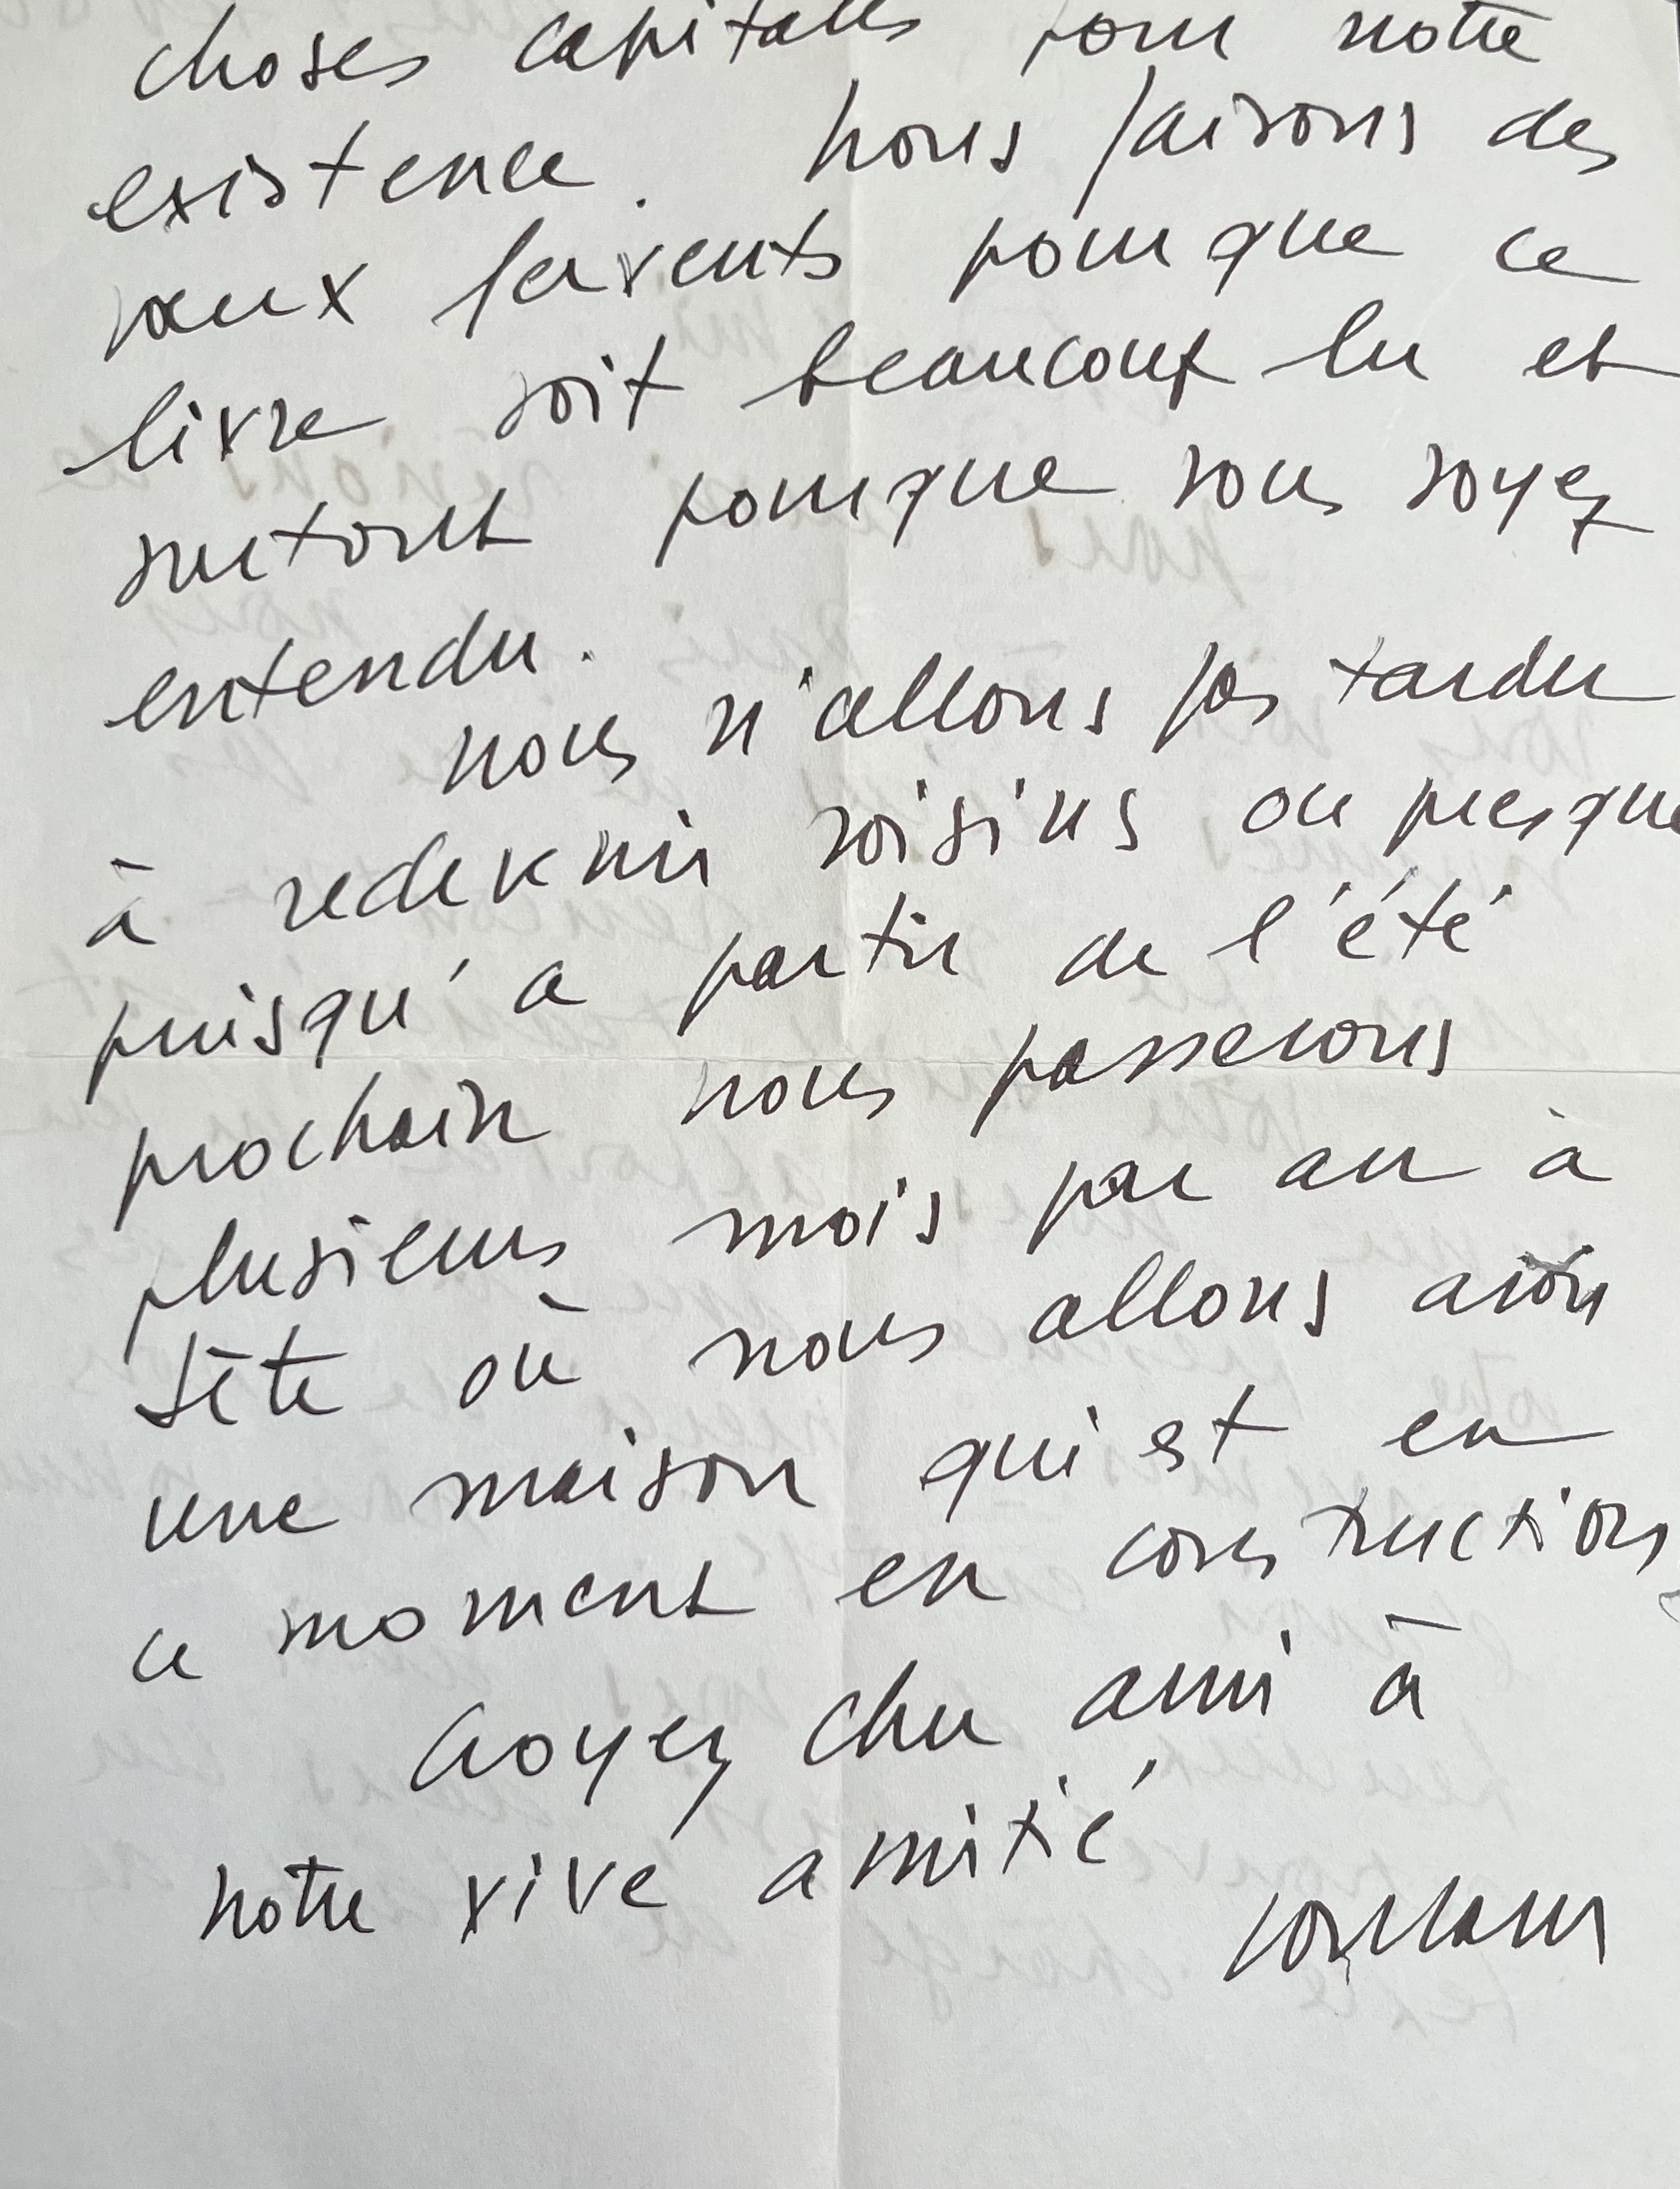 choses capitales pour notre
existence. Nous faisons des
vœux fervents pour que ce
livre soit beaucoup lu et
surtout pour que vous soyez
entendu.
Nous n'allons pas tarder
à redevenir voisins ou presque
puisqu'à partir de l'été
prochain nous passerons
plusieurs mois par an à
Sète où nous allons avoir
une maison qui est en
ce moment en construction.
Croyez cher ami à
notre vive amitié